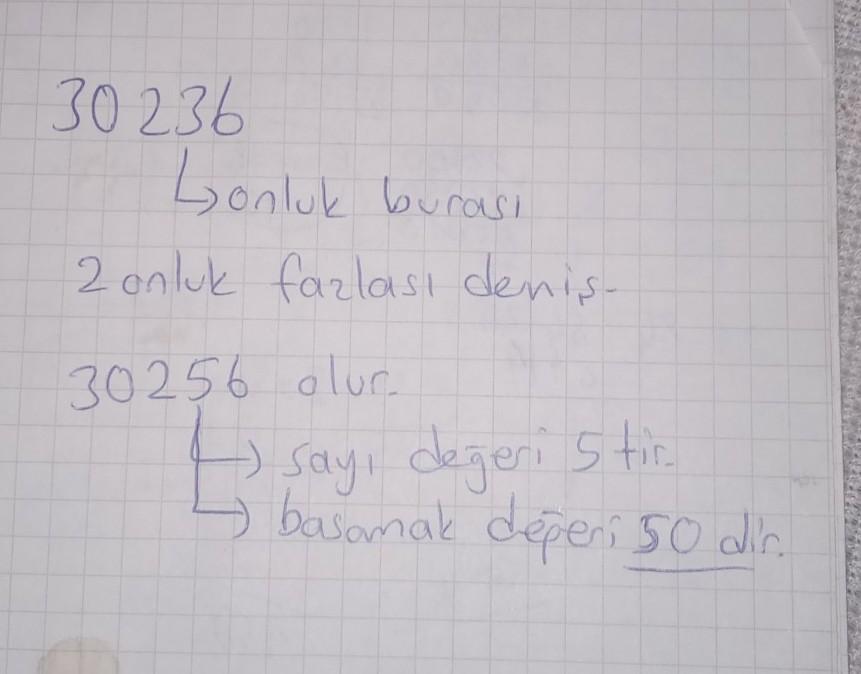 30236
↳onluk burası
2 onluk fazlası deniş-
30256 olur.
→ sayı değeri 5 tir.
→ basamak değeri 50 dir.